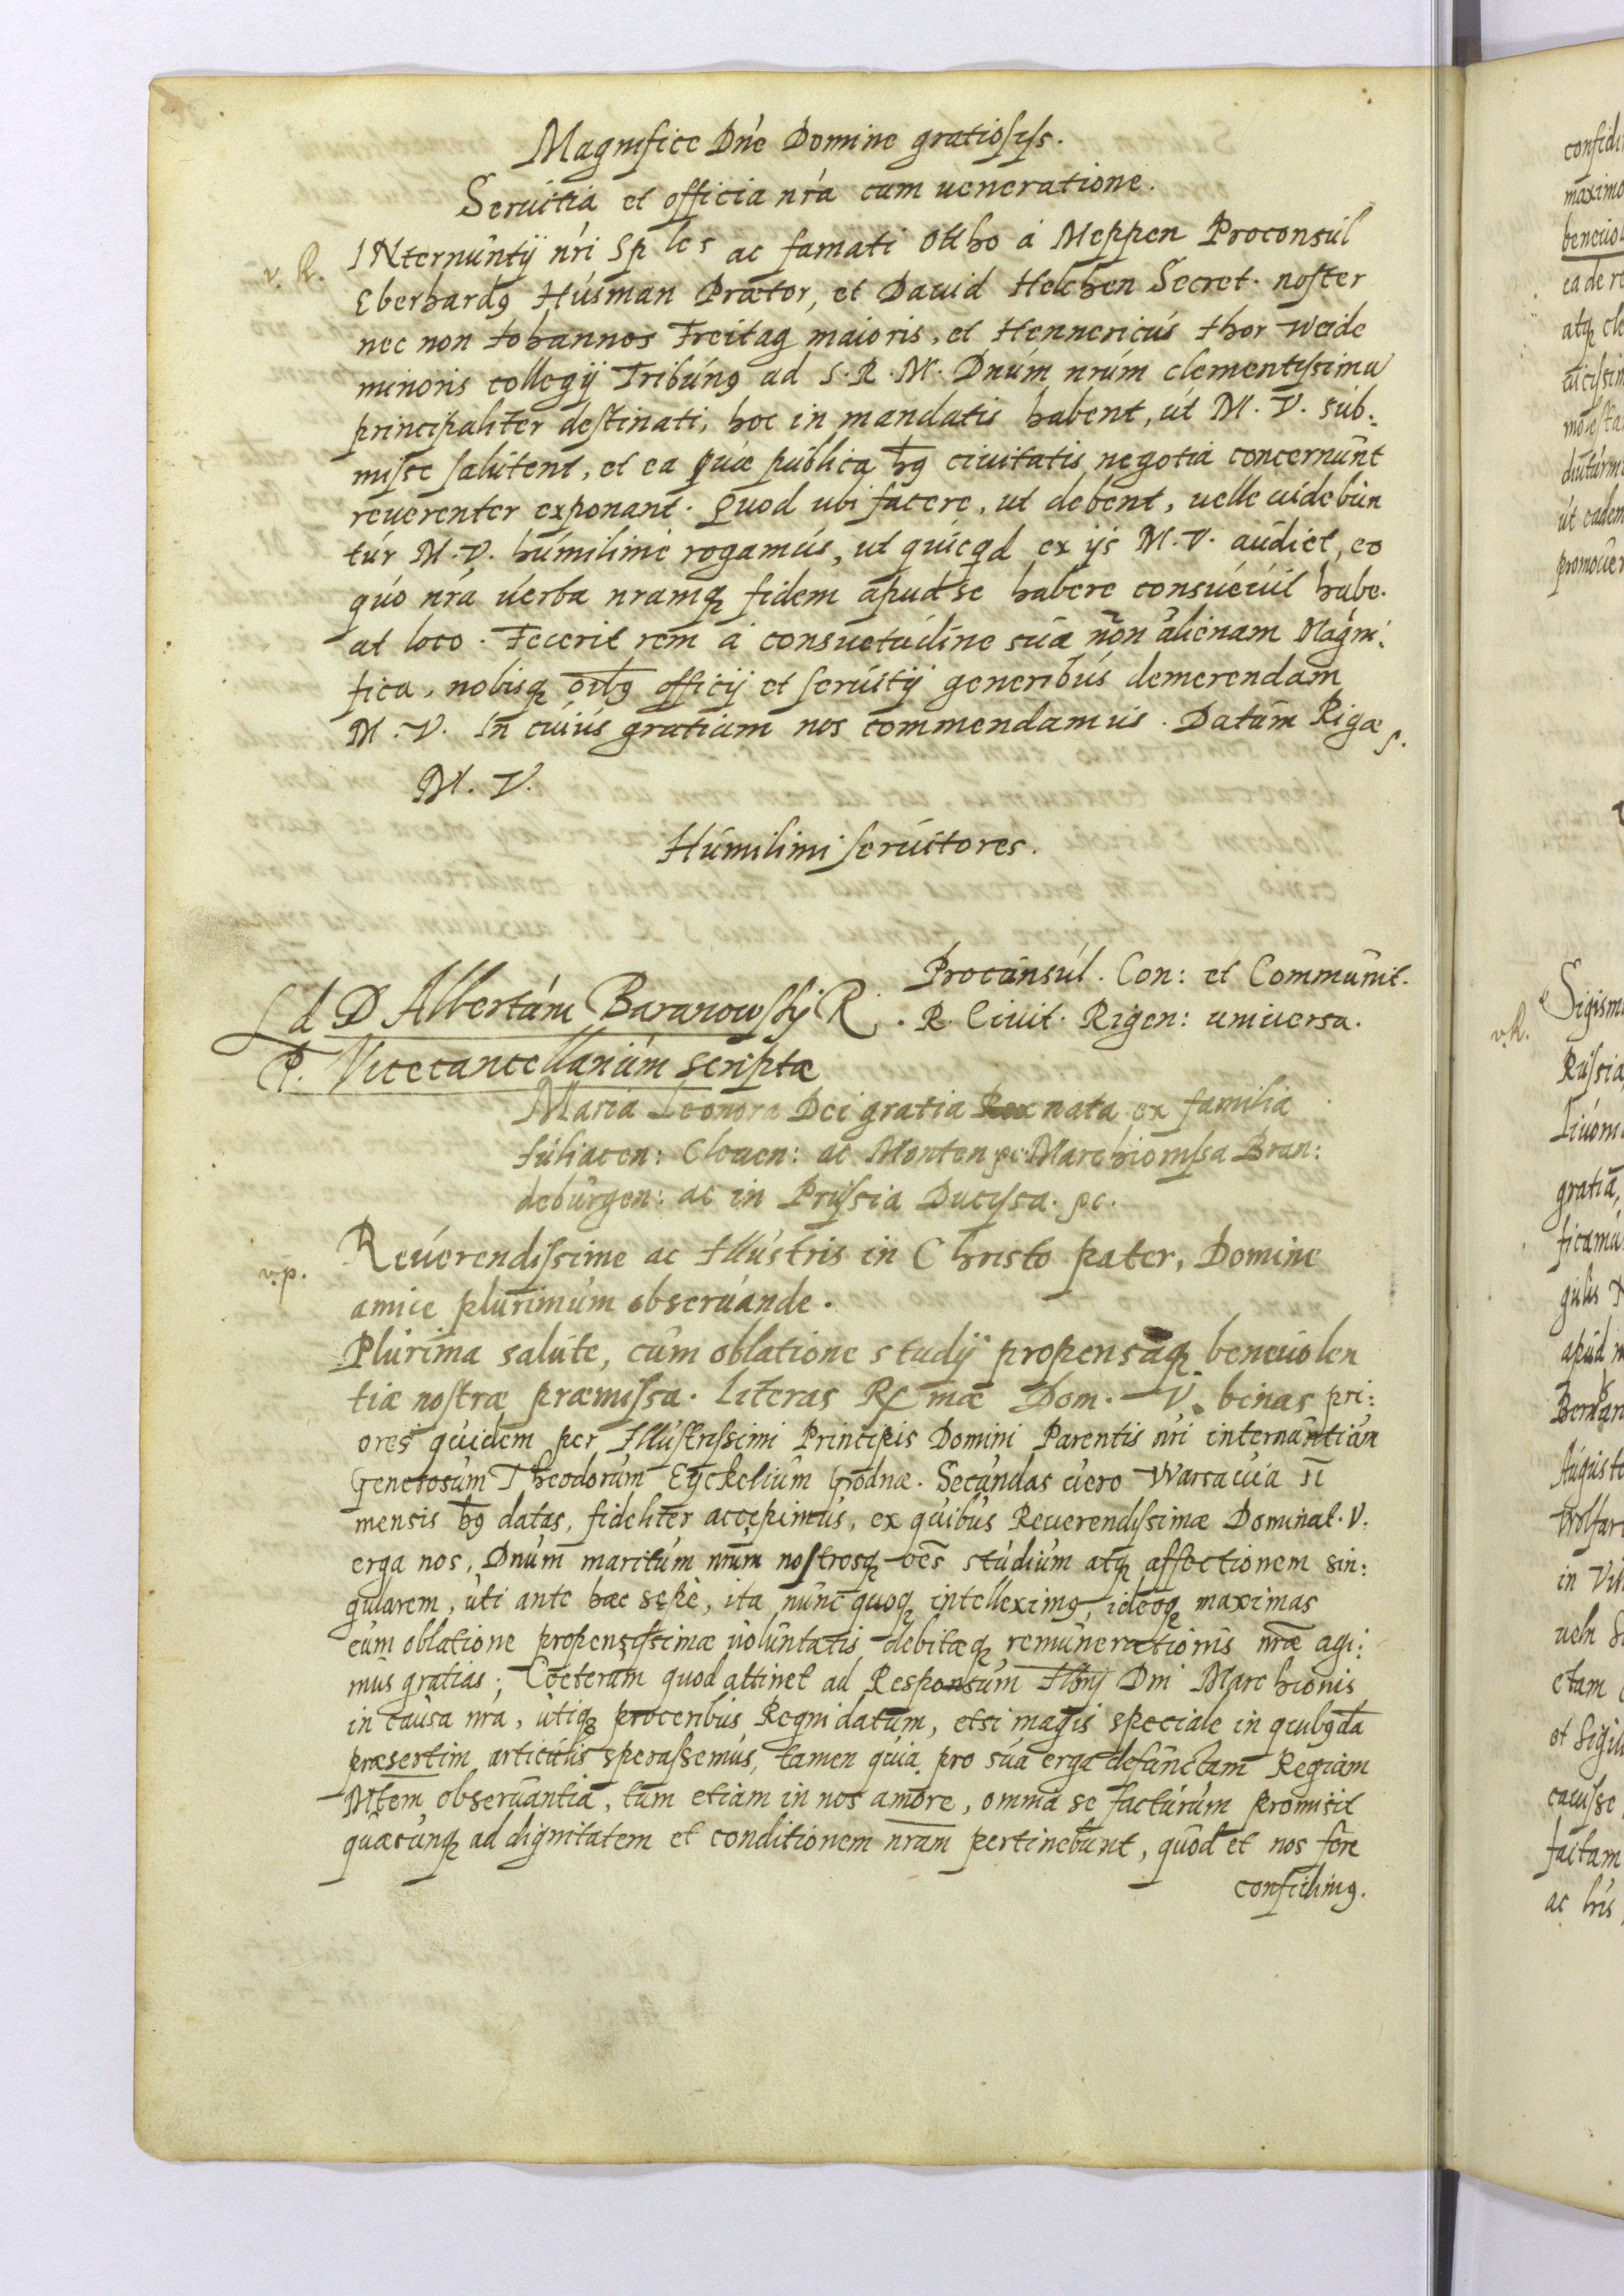 Magnifice Dn̄e Domine gratiosiſs.
Seruitia et officia nr̄a cum ueneratione.
v. R. INternuntij nr̄i Sp les ac famati Ottho à Meppen Proconsul
Eberhardꝯ Husman Prætor, et Dauid Helchen Secret. noster
nec non Johannes Freitag maioris, et Hennericus thor Weide
minoris collegij Tribunꝯ ad S. R. M. Dnūm nr̄um clementiſsimū
principaliter destinati, hoc in mandatis habent, ut M. V. sub:
miſse salutent, et ea quæ publica hꝯ ciuitatis negotia concernunt
reuerenter exponant. Quod ubi facere, ut debent, uelle uidebun
tur M. V. humilime rogamus, ut quicqd ex ijs M. V. audiet, eo
quo nr̄a uerba nr̄amqꝫ fidem apud se habere consueuit habe.
at loco. Fecerit rem à consuetudine sua non alienam Magni:
fica, nobisqꝫ oībꝯ officij et seruitij generibus demerendam
M. V. In cuius gratiam nos commendamus. Datum Rigæ
M. V.
Humilimi seruitores.
Proconsul. Con: et Communit.
R. Ciuit. Rigen: uniuersa.
Ad D Albertum Baranowskj R.
P. Vicecancellarium scriptæ
Maria Leonora Dei gratia Rex nata ex familia
Juliacen: Cleuen: ac Monten pc Marchioniſsa Bran:
deburgen: ac in Pruſsia Duciſsa. pc.
v. p. Reuerendiſsime ac Illustris in Christo pater, Domine
amice plurimum obseruande.
Plurima salute, cum oblatione studij propensæqꝫ beneuolen
tiæ nostræ præmiſsa. Literas Rx mæ Dom. V. binas pri:
ores quidem per Illustriſsimi Principis Domini Parentis nr̄i internuntium
Generosum Theodorum Eyckelium Grodnæ. Secundas uero Warsauia
mensis hꝯ datas, fideliter accepimus, ex quibus Reuerendiſsimæ Dominat. V.
erga nos, Dnūm maritum nr̄um nostrosqꝫ oēs studium atqꝫ affectionem sin:
gularem, uti ante hac sępè, ita nunc quoqꝫ intelleximꝯ, ideoqꝫ maximas
cum oblatione propensiſsimæ uoluntatis debitæqꝫ remunerationis nr̄æ agi:
mus gratias; Cœterum quod attinet ad Responsum Illmj Dni Marchionis
in causa nr̄a, utiqꝫ proceribus Regni datum, etsi magis speciale in quibꝯdā
præsertim articulis speraſsemus, tamen quia pro sua erga defunctam Regiam
Mtem obseruantia, tum etiam in nos amore, omnia se facturum promisit
quæcunqꝫ ad dignitatem et conditionem nr̄am pertinebunt, quod et nos fore
confidimꝯ.